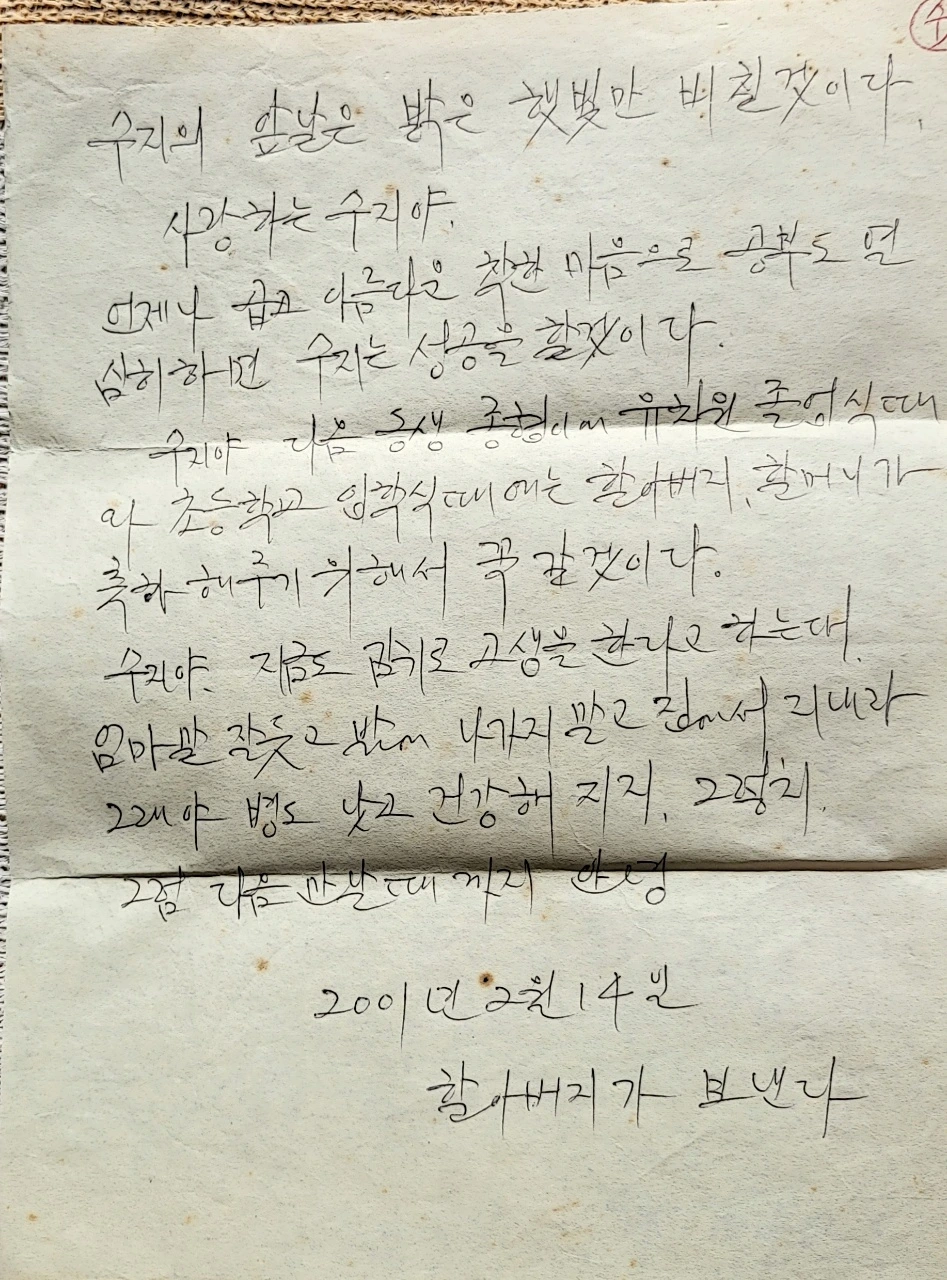 수
수지의 앞날은 밝은 햇빛만 비칠것이다.
사랑하는 수지야.
언제나 곱고 아름다운 착한 마음으로 공부도 열
심히하면 수지는 성공을 할것이다.
수지야 다음 동생 종형이에 유치원 졸업식때
와 초등학교 입학식때에는 할아버지, 할머니가
축하해주기 위해서 꼭 갈것이다.
수지야. 지금도 감기로 고생을 한다고 하는데.
엄마말 잘듣고 밖에 나가지 말고 집에서 지내라
그래야 병도 낫고 건강해 지지. 그렇치.
그럼 다음 만날때 까지 안녕
2001년 2월 14일
할아버지가 보낸다